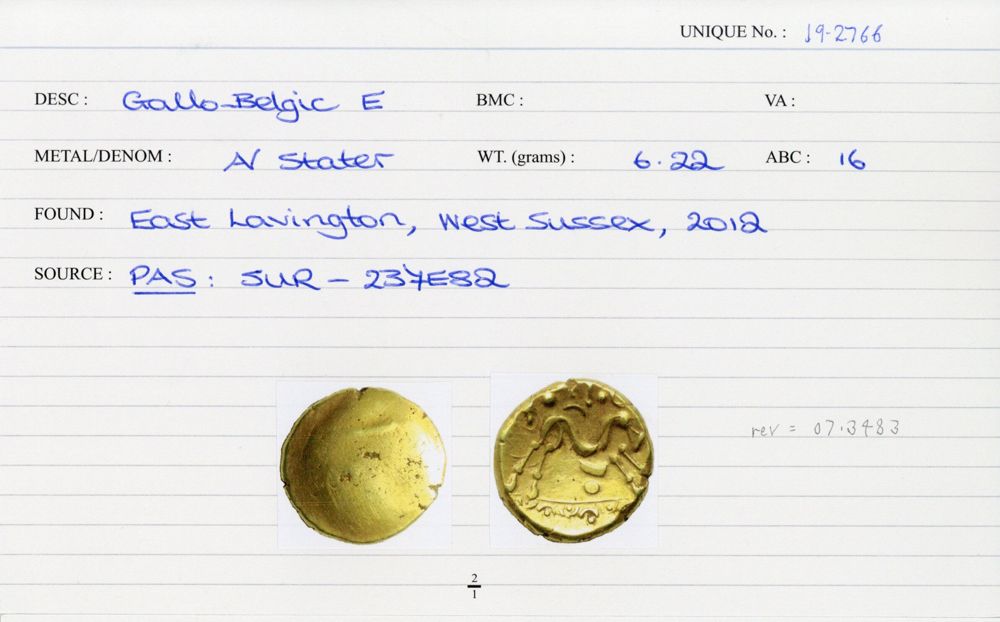 UNIQUE No. : 19-2766
DESC : Gallo-Belgic E BMC : VA :
METAL/DENOM : AV Stater WT. (grams) : 6.22 ABC : 16
FOUND : East Lavington, West Sussex, 2012
SOURCE : PAS : SUR - 237E82
rev = 07.3483
2
1